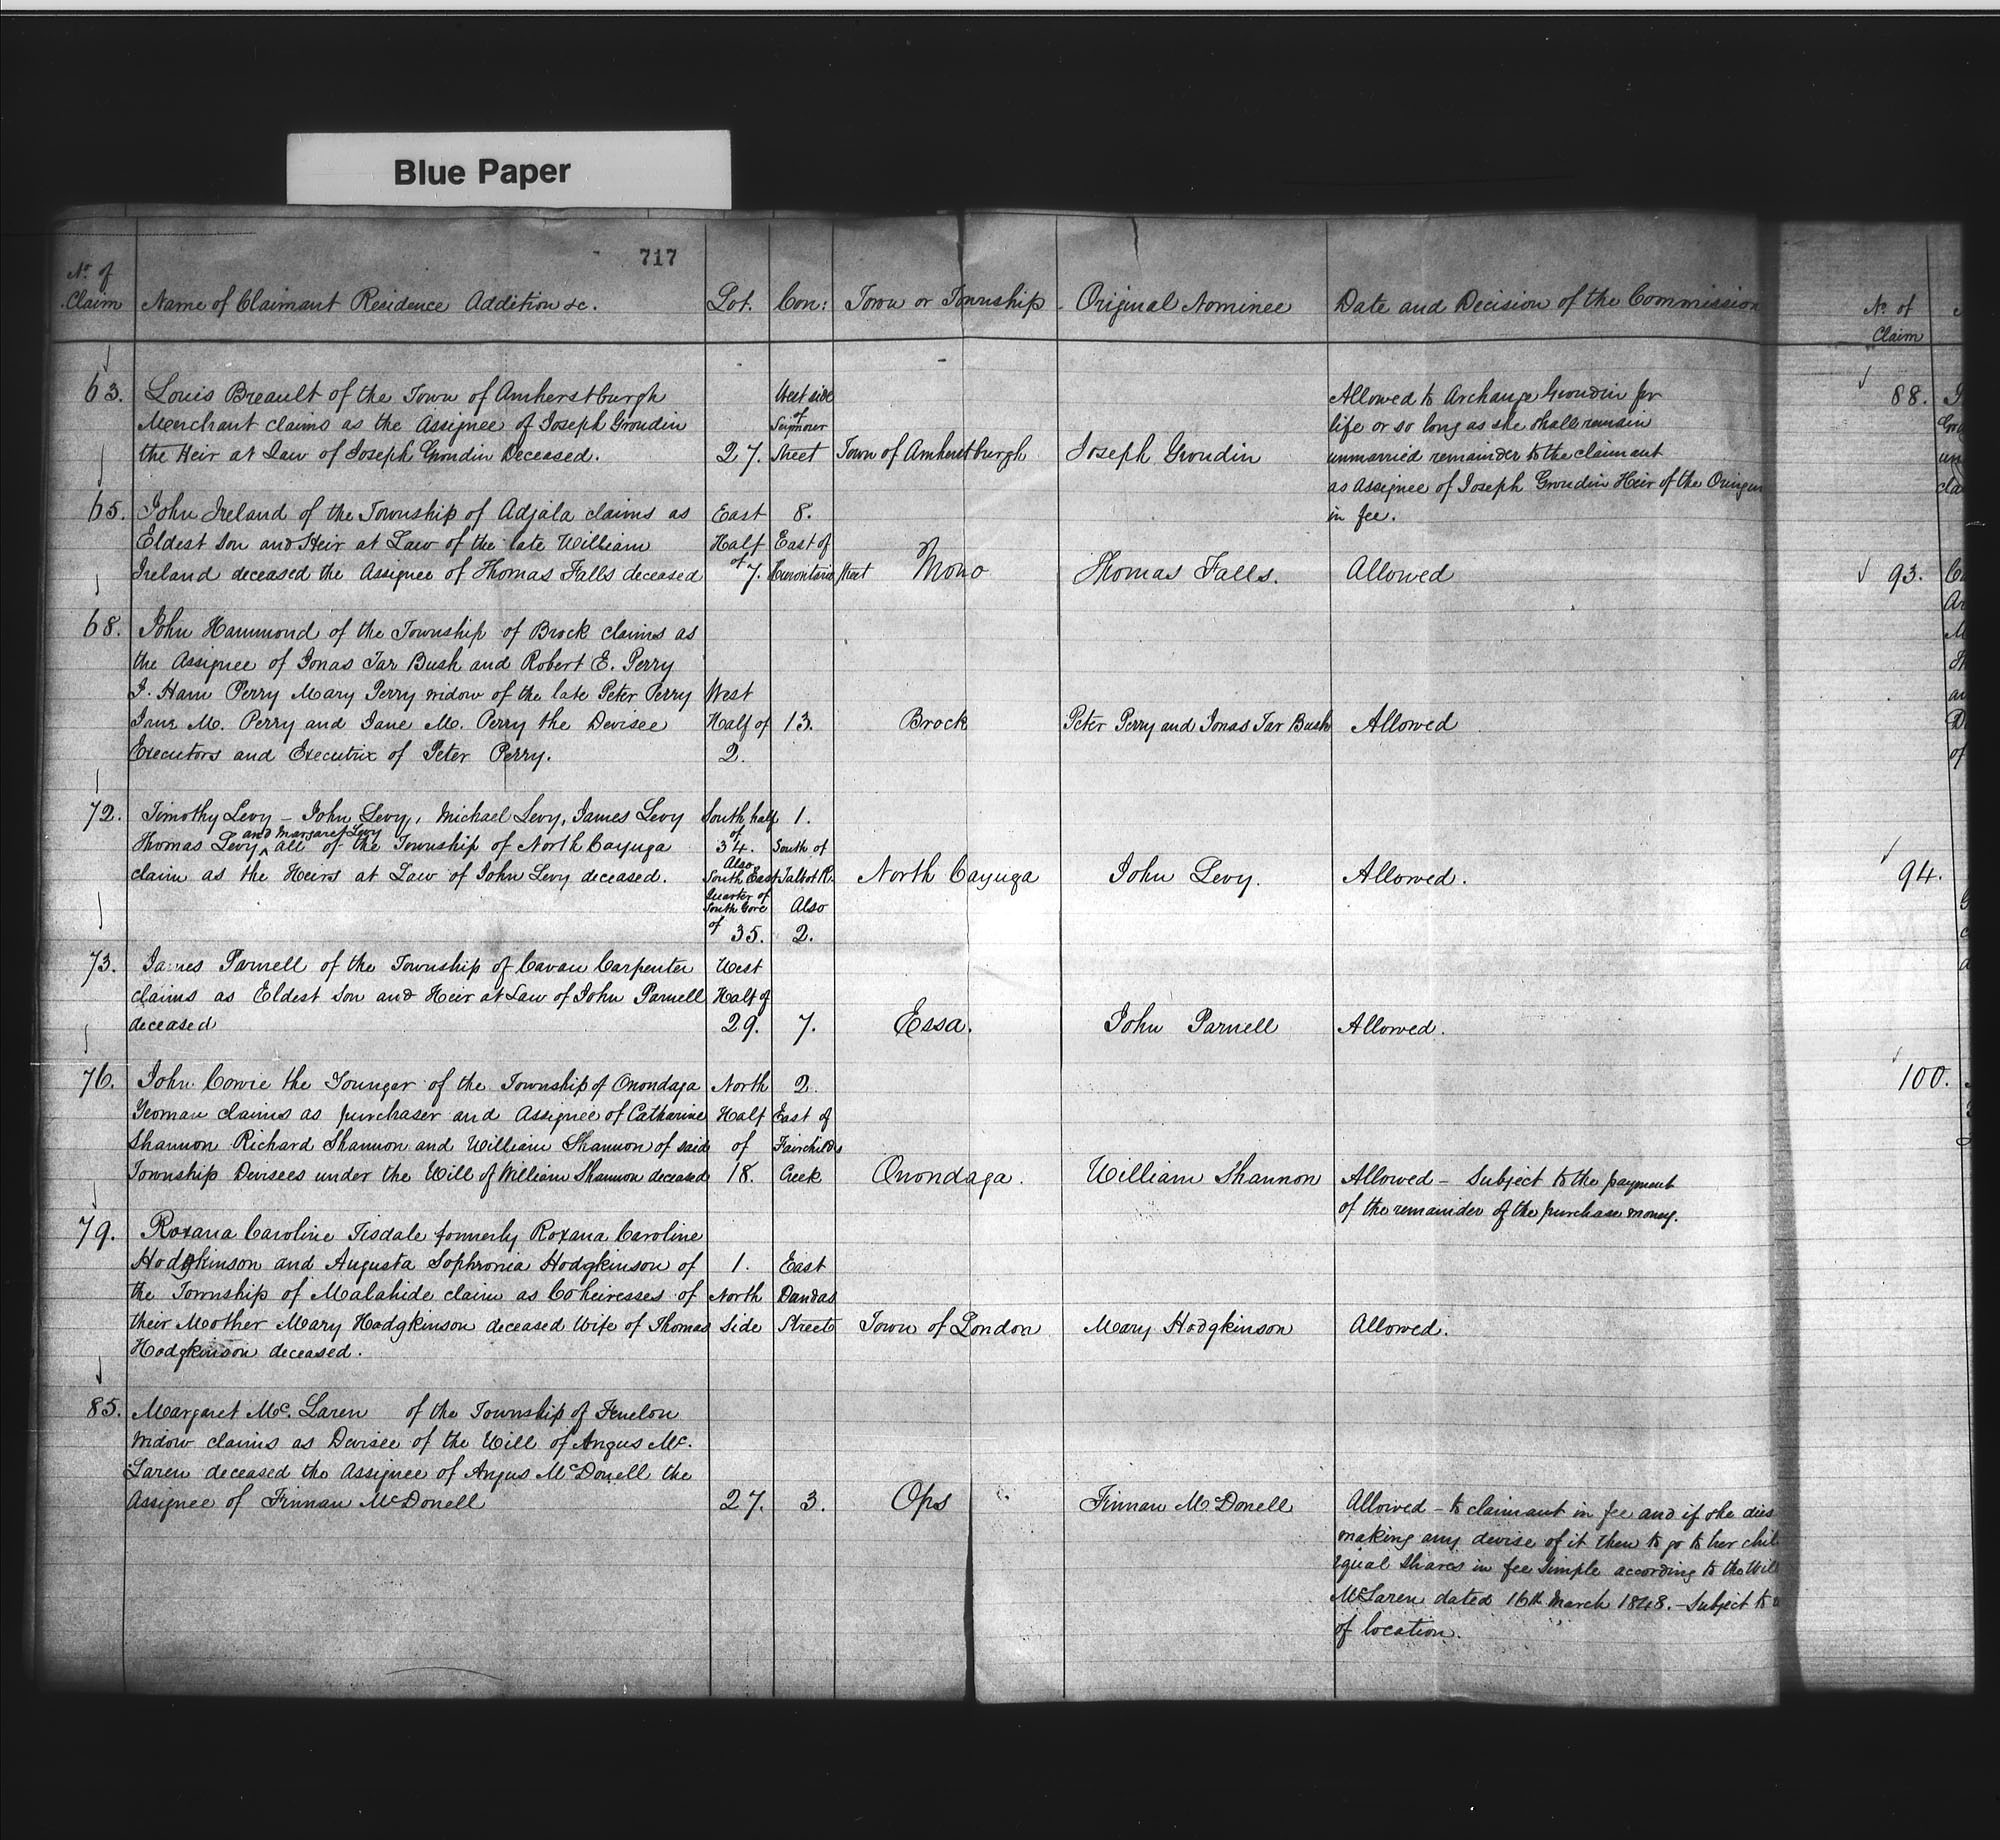 Blue Paper
717
No. of Claim
Name of Claimant Residence Addition &c.
Lot.
Con:
Town or Township
Original Nominee
Date and Decision of the Commission
63.
Louis Breault of the Town of Amherstburgh
Merchant claims as the Assignee of Joseph Groudin
the Heir at Law of Joseph Groudin Deceased.
27.
West side
of
Seymour
Street
Town of Amherstburgh
Joseph Groudin
Allowed to Archange Groudin for
life or so long as she shall remain
unmarried remainder to the claimant
as Assignee of Joseph Groudin Heir of the
in fee.
65.
John Ireland of the Township of Adjala claims as
Eldest Son and Heir at Law of the late William
Ireland deceased the Assignee of Thomas Falls deceased
East
Half
of 7.
8.
East of
Hurontario Street
Mono
Thomas Falls.
Allowed
68.
John Hammond of the Township of Brock claims as
the Assignee of Jonas Tar Bush and Robert E. Perry
J. Ham Perry Mary Perry widow of the late Peter Perry
M. Perry and Jane M. Perry the Devisee
Executors and Executrix of Peter Perry.
West
Half of
2.
13.
Brock
Peter Perry and Jonas Tar Bush
Allowed
72.
Timothy Levy - John Levy, Michael Levy, James Levy
and Margaret Levy
Thomas Levy ^ all of the Township of North Cayuga
claim as the Heirs at Law of John Levy deceased.
South half
of
34.
Also
South East
Quarter of
South Gore
of 35.
1.
South of
Talbot R.
Also
2.
North Cayuga
John Levy.
Allowed.
73.
James Parnell of the Township of Cavan Carpenter
claims as Eldest Son and Heir at Law of John Parnell
deceased
West
Half of
29.
7.
Essa.
John Parnell
Allowed.
76.
John Cowie the Younger of the Township of Onondaga
Yeoman claims as purchaser and Assignee of Catharine
Shannon Richard Shannon and William Shannon of said
Township Devisees under the Will of William Shannon deceased
North
Half
of
18.
2.
East of
Fairchilds
Creek
Onondaga.
William Shannon
Allowed - Subject to the payment
of the remainder of the purchase money.
79.
Roxana Caroline Tisdale formerly Roxana Caroline
Hodgkinson and Augusta Sophronia Hodgkinson of
the Township of Malahide claim as Coheiresses of
their Mother Mary Hodgkinson deceased Wife of Thomas
Hodgkinson deceased.
1.
North
Side
East
Dundas
Street
Town of London
Mary Hodgkinson
Allowed.
85.
Margaret Mc. Laren of the Township of Fenelon
Widow claims as Devisee of the Will of Angus Mc.
Laren deceased the Assignee of Angus McDonell the
Assignee of Finnan McDonell
27.
3.
Ops
Finnan McDonell
Allowed - to claimant in fee and if she dies
making any devise of it then to go to her chil
equal shares in fee simple according to the Will
McLaren dated 16th March 1848. - Subject to
of location.
No. of
Claim
88.
93.
94.
100.